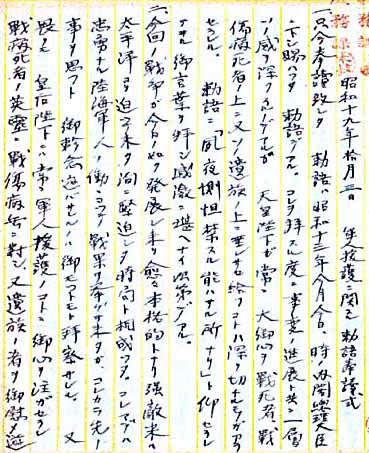 昭和十九年拾月三日 軍人援護ニ関スル勅語奉読式
一、只今奉読致シタ 勅語ハ昭和十三年今月今日、時ノ内閣総理大臣
ニ下シ賜ハッタ 勅語デアル。コレヲ拝スル度ニ事変ノ進展ト共ニ一層
ソノ感ヲ深クスルノデアルガ 天皇陛下ガ常ニ 大御心ヲ戦死者、戦
傷病死者ノ上ニ又ソノ遺族ノ上ニ垂レサセ給フコトハ深ク切ナルモノガアリマス
勅語ニ「夙夜惻怛禁スル能ハサル所ナリ」ト仰セラレ
御言葉ヲ拝シ感激ニ堪ヘナイ次第デアル。
二、今回ノ戦争ガ今日ノ如ク発展シ来リ愈々本格的トナリ強敵米ハ
太平洋ヲ迫ミ来リ洵ニ緊迫シタ時局ト相成ッタ。
忠勇ナル陸海軍人ノ働 戦果ヲ挙ゲ来タガ、コレカラ先ノ
事ヲ思フト 御軫念遊バサルルハ御モットモト拝察サレル。又
畏クモ 皇后陛下ニハ常ニ軍人援護ノコトニ御心ヲ注ガセラレ
戦病死者ノ英霊ニ、戦傷病兵ニ対シ、又遺族ノ者ヲ御慰メ遊